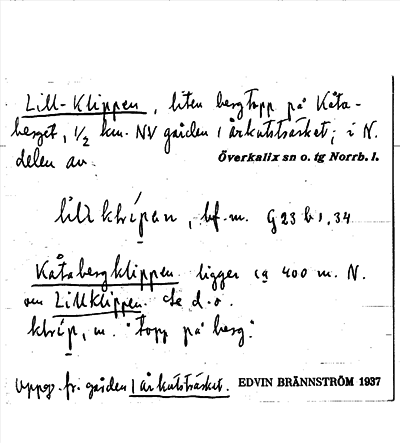 Lill-Klippen, liten bergtopp på Kåta-
berget, 1/2 km. NV gården 1 Årkutsträsket; i N.
delen av Överkalix sn o. tg Norrb. l.
lill klripen, bf. m. G 23 b 1, 34
Kåtabergklippen ligger ca 400 m. N.
om Lillklippen. Se d. o.
klrip, m. "topp på berg".
Uppg. fr. gården 1 Årkutsträsket. EDVIN BRÄNNSTRÖM 1937